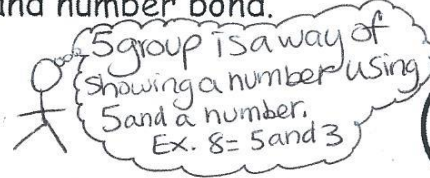 and number bond.
5group is a way of
showing a number using
5 and a number.
Ex. 8= 5 and 3